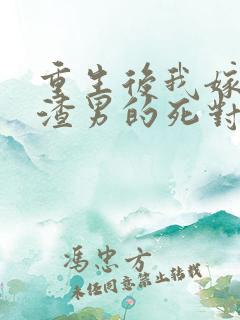 重生後我嫁
渣男的死對
馮忠方
未经同意禁止转载